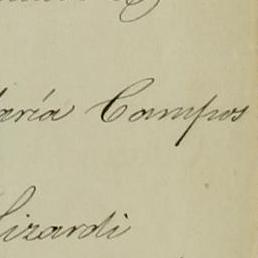 aría Campos
Lizardi